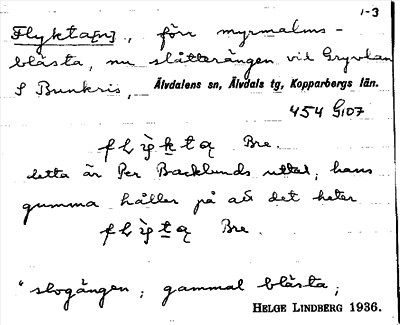 1-3
Flykta[n]., förr myrmalms-
blästa, nu slåtterängen vid Gryvlan
S Bunkris, Älvdalens sn, Älvdals tg, Kopparbergs län.
454 G107
Bre.
detta är Per Backlunds uttal, hans
gumma håller på att det heter
Bre.
"slogången; gammal blästa;
HELGE LINDBERG 1936.